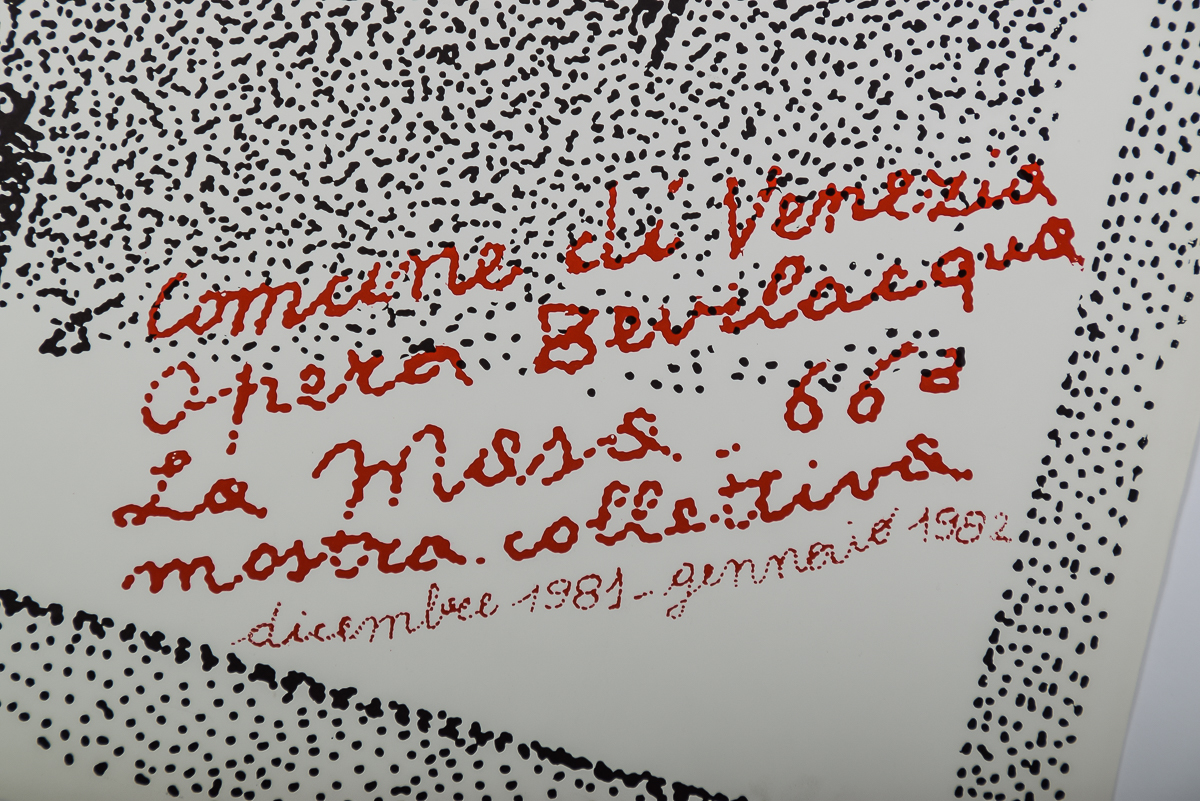 Comune di Venezia
Opera Bevilacqua
La Masa 66a
mostra collettiva
dicembre 1981-gennaio 1982